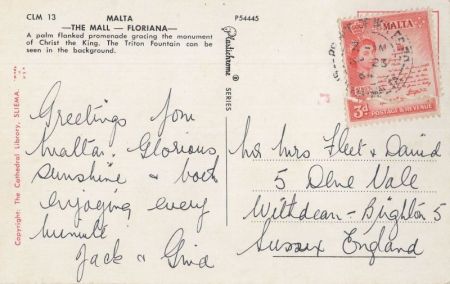 CLM 13 MALTA P54445
—THE MALL — FLORIANA—
A palm flanked promenade gracing the monument
of Christ the King. The Triton Fountain can be
seen in the background.
Copyright: The Cathedral Library, SLIEMA.
Greetings from
Malta. Glorious
sunshine & both
enjoying every
minute
Jack &
Plastichrome ® SERIES
MALTA
3d POSTAGE & REVENUE
Mrs Fleet & David
5 Dene Vale
Withdean - Brighton 5
Sussex England